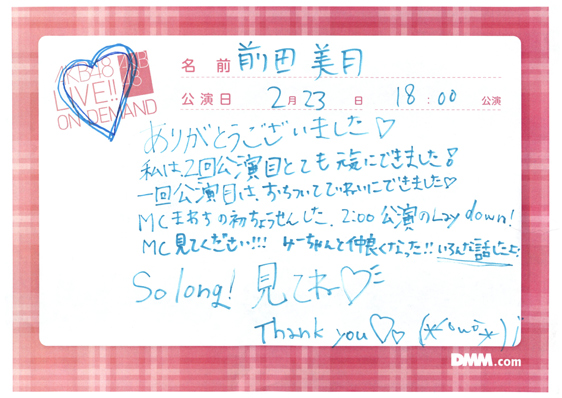 AKB48
LIVE!!
ON DEMAND
名前 前田 美月
公演日 2月23日 18:00 公演
ありがとうございました♡
私は、2回公演目とても元気にできました!
一回公演目は、おちついてていねいにできました♡
MCまわちの初ちょうせんした、2:00 公演のLay down!
MC 見てください!!! みーちゃんと仲良くなった!! いろんな話したよ!
So long! 見てね♡
Thank you♡♡ (*´ω`*)
DMM.com